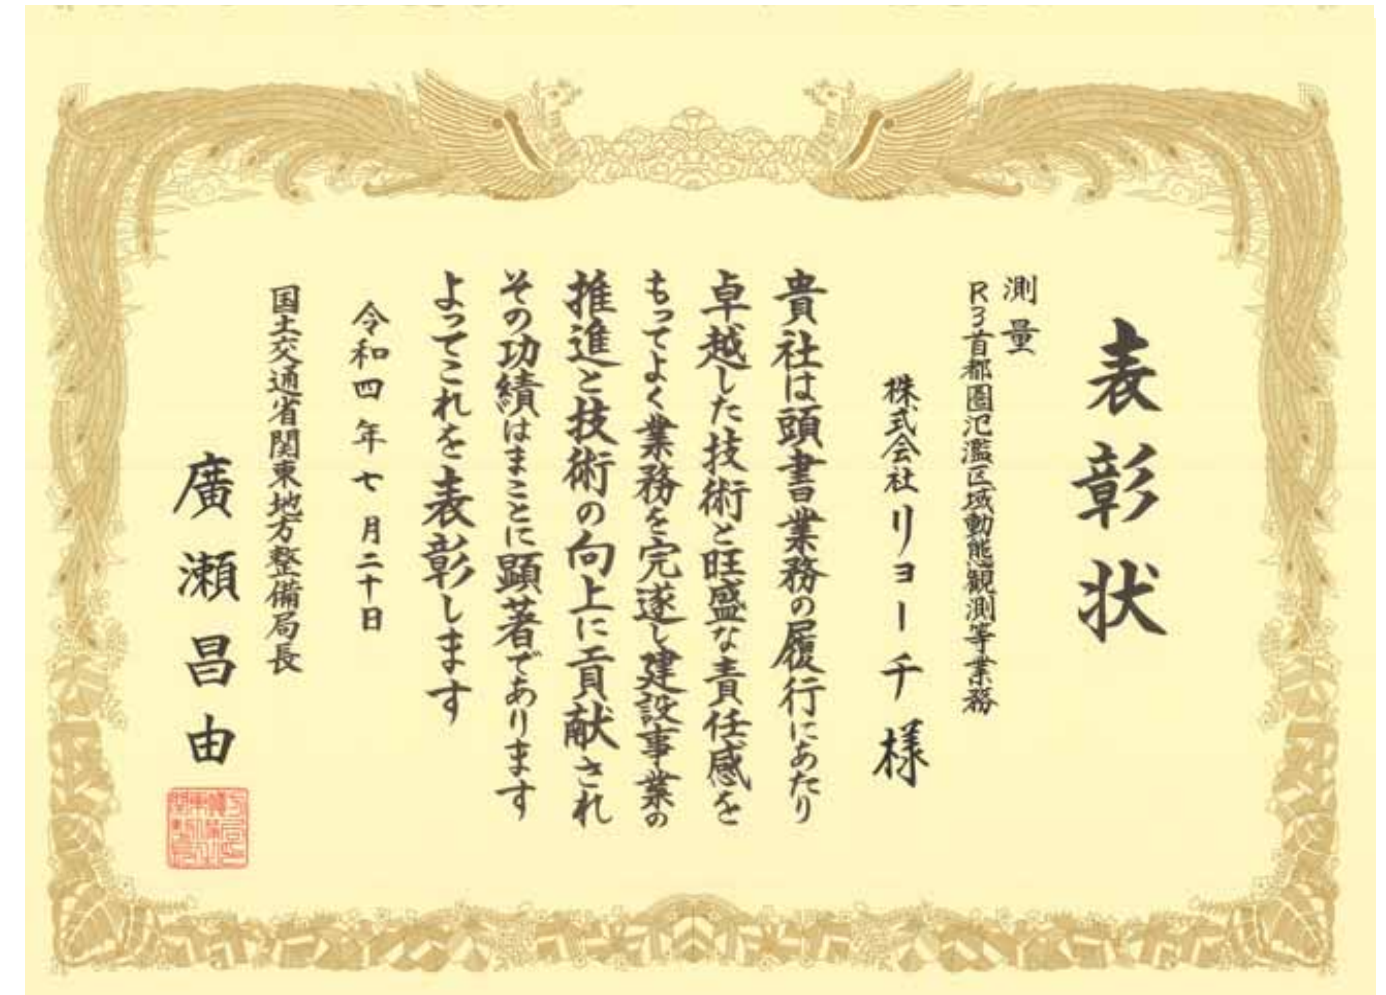 表彰状
測量
R3首都圏氾濫区域動態観測等業務
株式会社リョーチ様
貴社は頭書業務の履行にあたり
卓越した技術と旺盛な責任感を
もってよく業務を完遂し建設事業の
推進と技術の向上に貢献され
その功績はまことに顕著であります
よってこれを表彰します
令和四年七月二十日
国土交通省関東地方整備局長
廣瀬昌由